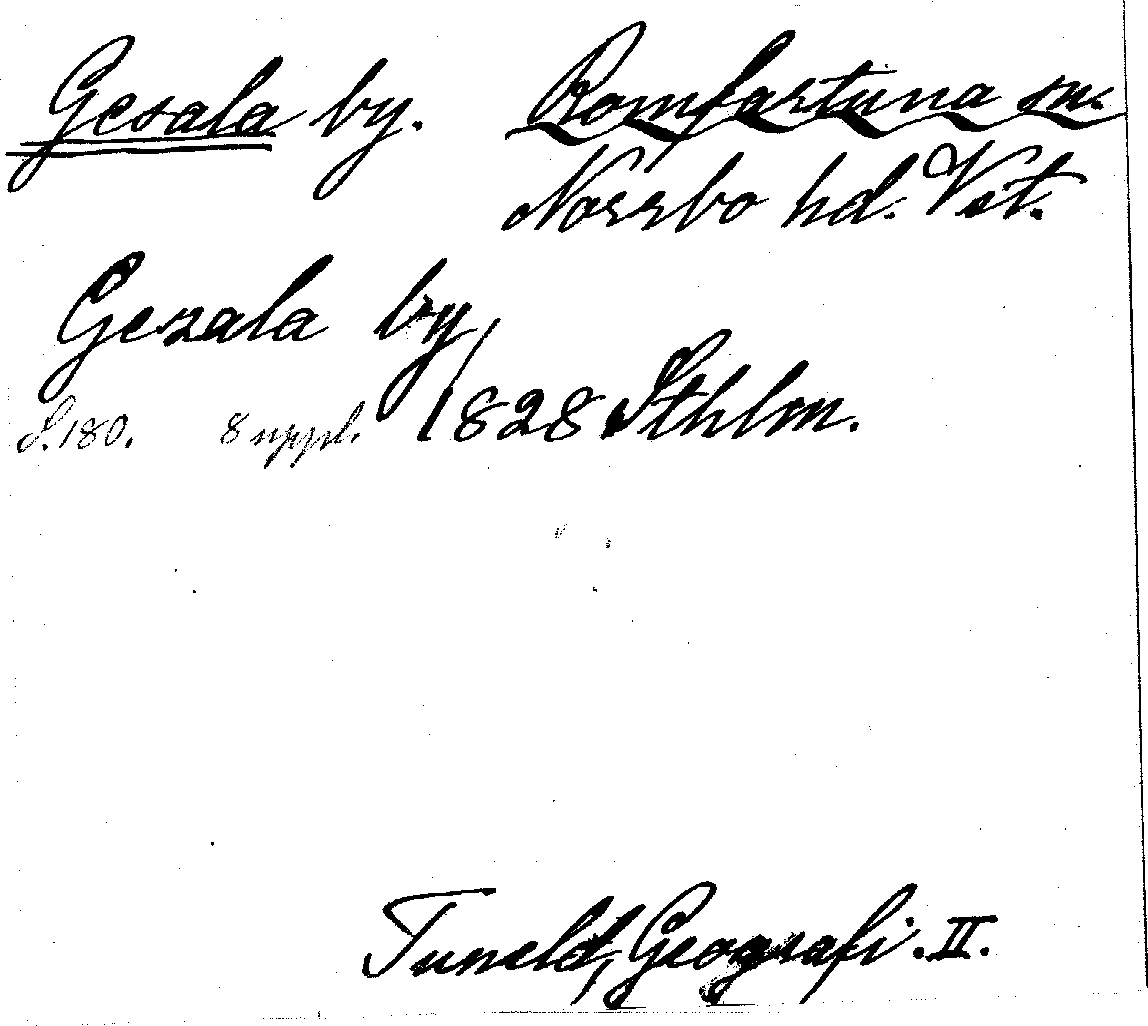 Gesala by. Romfartuna sn.
Norrbo hd. Vst.
Gesala by,
S. 180. 8 uppl. 1828 Sthlm.
Tuneld, Geografi. II.